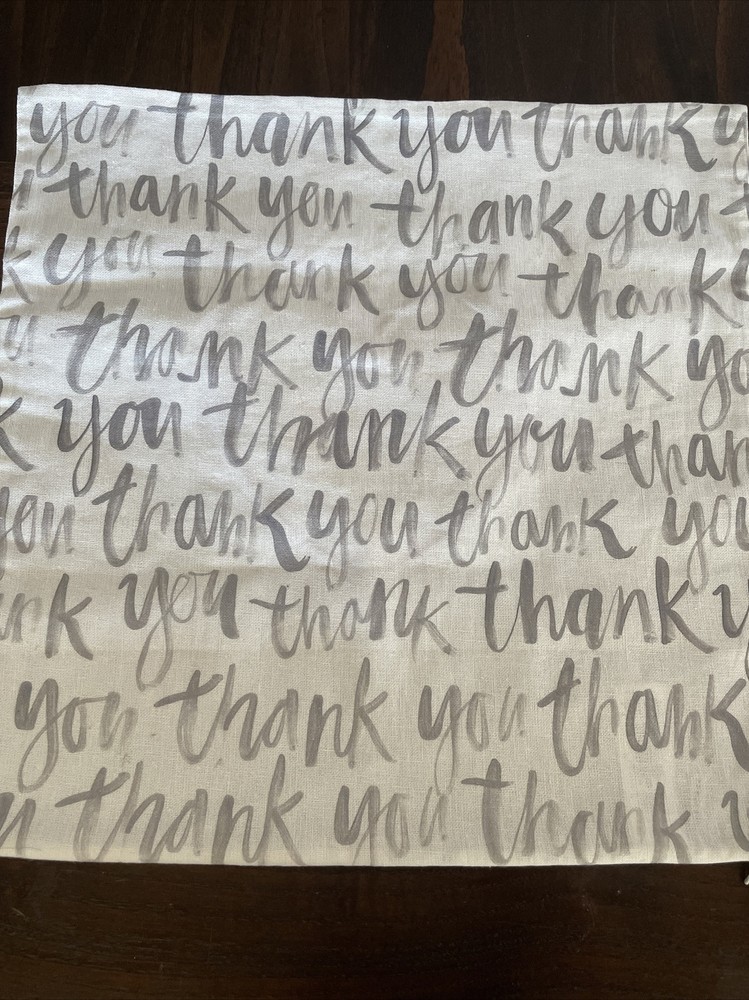 you thank you thank y
thank you thank you
k you thank you thank
u thank you thank yo
k you thank you than
you thank you thank you
ank you thank thank y
you thank you thank
u thank you thank y